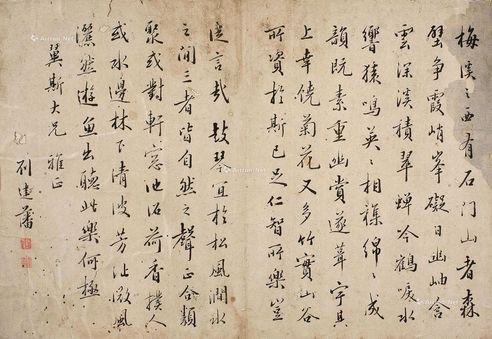 梅溪之西有石门山者森
壁争霞峭峯礙日幽岫含
雲深溪積翠蟬吟鶴唳水
響猿鳴英〻相雜綿〻成
韻既素重幽賞遂葺宇其
上幸饒菊花又多竹實山谷
所資於斯已足仁智所樂豈
徒言哉 鼓琴宜於松風澗水
之间三者皆自然之聲正合類
聚或對軒窓池沼荷香撲人
或水邊林下清波芳沚微風
灑然游魚出聽此樂何極
翼斯大兄 雅正
刘建藩